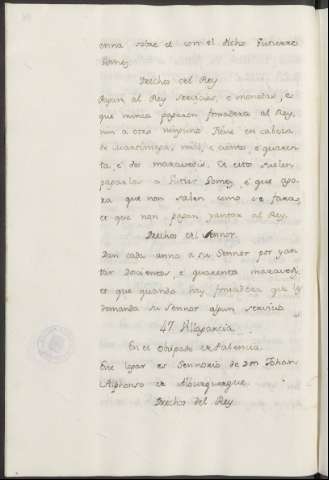 anna sobre el con el dicho Gutierre
Gomez
Derechos del Rey
Pagan al Rey servicios, e monedas, e
que nunca pagaron fonsadera al Rey,
nin a otro ninguno. Tiene en cabeza
de martiniega, mill, e ciento, e quaren
ta, e dos maravedis. De esto suelen
pagarlos a Gutier Gomez, e que ago
ra que non valen como se faras,
et que non pagan yantar al Rey.
Derechos del Sennor
Dan cada anno a su Sennor por yan
tar docientos, e quarenta maraveds,
et que quando hay fonsadera que le
demanda su Sennor algun servicio
47. Villagarcia
En el Obispado de Palencia
Este logar es Sennorio de Don Johan
Alphonso de Alburquerque
Derechos del Rey